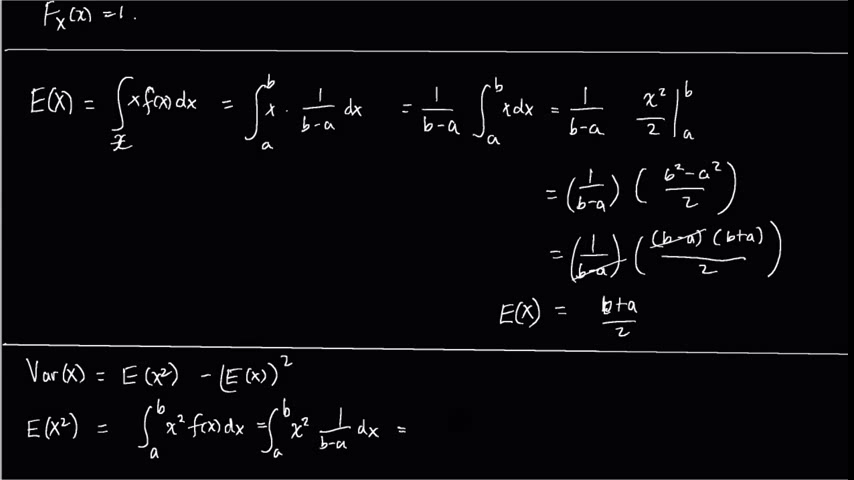 F_X(x) = 1.
E(X) = ∫_x x f(x) dx = ∫_a^b x · 1/(b-a) dx = 1/(b-a) ∫_a^b x dx = 1/(b-a) x²/2 |_a^b
= (1/(b-a)) ((b²-a²)/2)
= (1/(b-a)) ((b-a)(b+a)/2)
E(X) = (b+a)/2
Var(X) = E(X²) - (E(X))²
E(X²) = ∫_a^b x² f(x) dx = ∫_a^b x² 1/(b-a) dx =